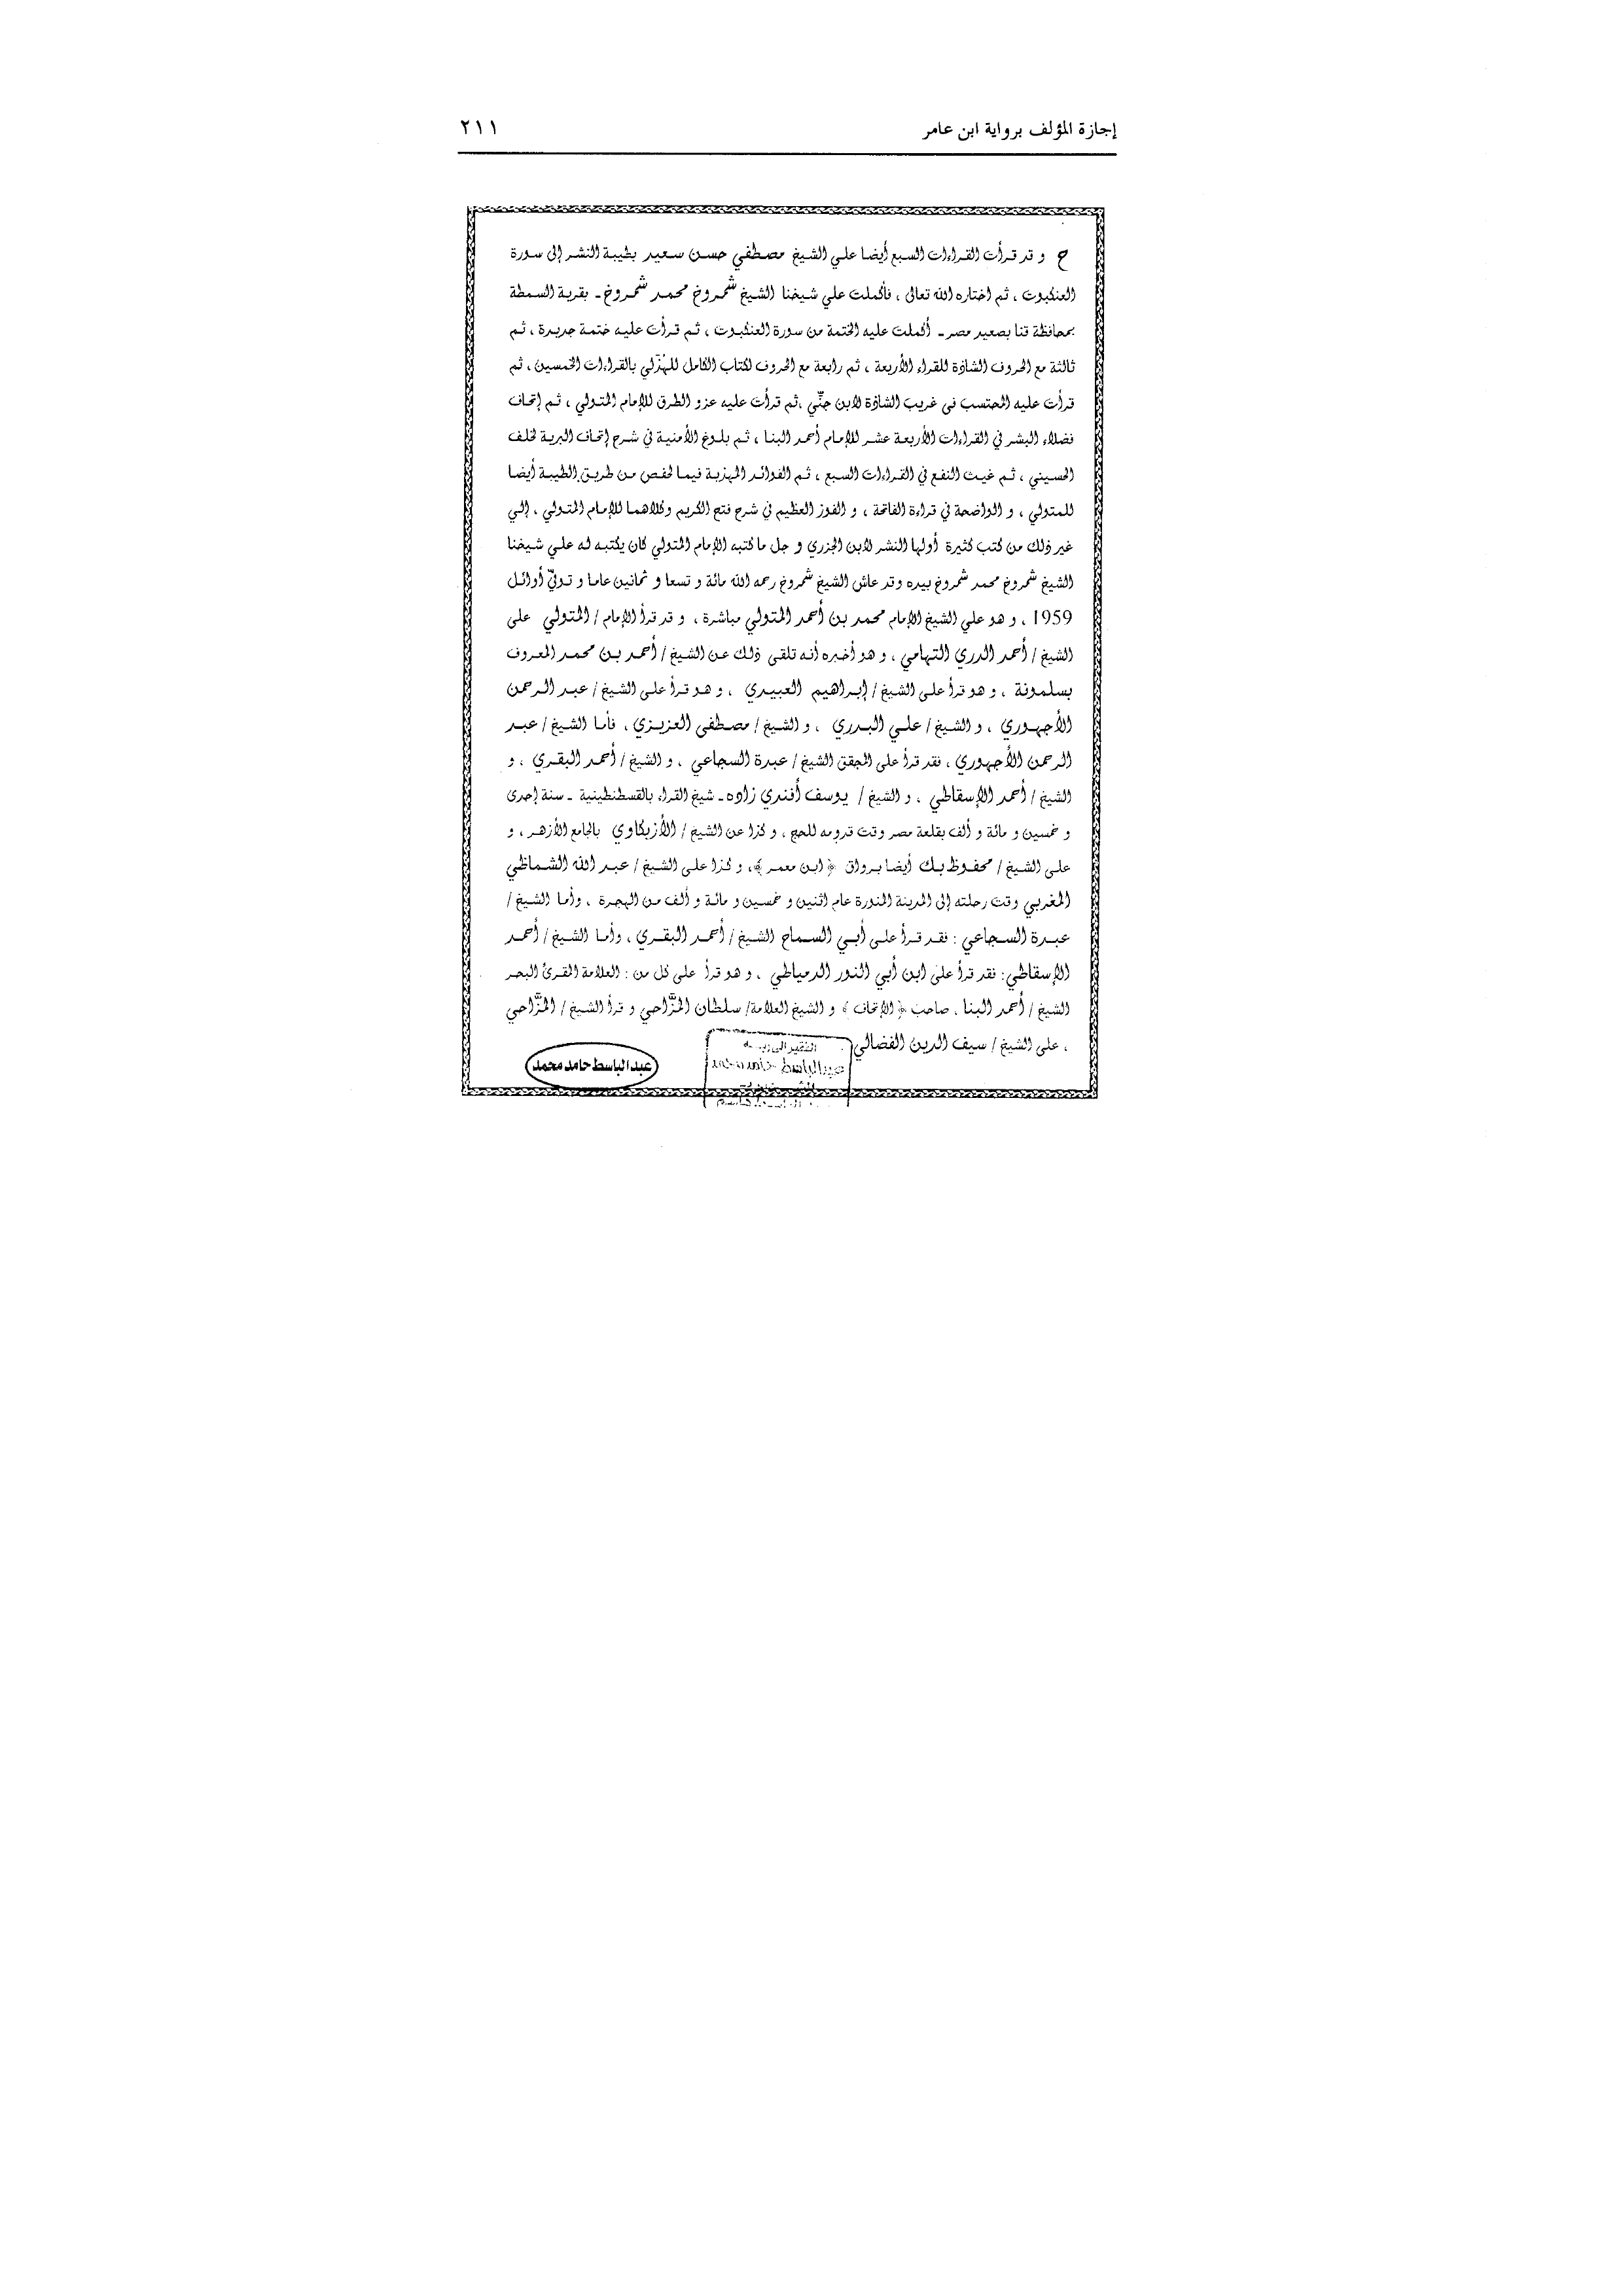 إجازة المؤلف برواية ابن عامر
٢١١
ح و قد قرأت القراءات السبع أيضا علي الشيخ مصطفي حسن سعيد بطيبة النشر إلى سورة
العنكبوت ، ثم اختاره الله تعالى ، فأكملت علي شيخنا الشيخ شمروخ محمد شمروخ - بقرية السمطة
بمحافظة قنا بصعيد مصر - أكملت عليه الختمة من سورة العنكبوت ، ثم قرأت عليه ختمة جديدة ، ثم
ثالثة مع الحروف الشاذة للقراء الأربعة ، ثم رابعة مع الحروف لكتاب الكامل للهُذلي بالقراءات الخمسين ، ثم
قرأت عليه المحتسب في غريب الشاذة لابن جنّي ، ثم قرأت عليه عزو الطرق للإمام المتولي ، ثم إتحاف
فضلاء البشر في القراءات الأربعة عشر للإمام أحمد البنا ، ثم بلوغ الأمنية في شرح إتحاف البرية لخلف
الحسيني ، ثم غيث النفع في القراءات السبع ، ثم الفوائد المهذبة فيما لحفص من طريق الطيبة أيضا
للمتولي ، و الواضحة في قراءة الفاتحة ، و الفوز العظيم في شرح فتح الكريم وكلاهما للإمام المتولي ، إلي
غير ذلك من كتب كثيرة أولها النشر لابن الجزري و جل ما كتبه الإمام المتولي كان يكتبه له علي شيخنا
الشيخ شمروخ محمد شمروخ بيده وقد عاش الشيخ شمروخ رحمه الله مائة و تسعا و ثمانين عاما و توفيّ أوائل
1959 ، و هو علي الشيخ الإمام محمد بن أحمد المتولي مباشرة ، و قد قرأ الإمام / المتولي على
الشيخ / أحمد الدري التهامي ، و هو أخبره أنه تلقى ذلك عن الشيخ / أحمد بن محمد المعروف
بسلمونة ، و هو قرأ على الشيخ / إبراهيم العبيدي ، و هو قرأ على الشيخ / عبد الرحمن
الأجهوري ، و الشيخ / علي البدري ، و الشيخ / مصطفى العزيزي ، فأما الشيخ / عبد
الرحمن الأجهوري ، فقد قرأ على المحقق الشيخ / عبدة السجاعي ، و الشيخ / أحمد البقري ، و
الشيخ / أحمد الإسقاطي ، و الشيخ / يوسف أفندي زاده - شيخ القراء بالقسطنطينية - سنة إحدى
و خمسين و مائة و ألف بقلعة مصر وقت قدومه للحج ، و كذا عن الشيخ / الأزبكاوي بالجامع الأزهر ، و
على الشيخ / محفوظ بك أيضا برواق ﴿ ابن معمر ﴾ ، و كذا على الشيخ / عبد الله الشماظي
المغربي وقت رحلته إلى المدينة المنورة عام اثنين و خمسين و مائة و ألف من الهجرة ، وأما الشيخ /
عبدة السجاعي : فقد قرأ على أبي السماح الشيخ / أحمد البقري ، وأما الشيخ / أحمد
الإسقاطي : فقد قرأ على ابن أبي النور الدمياطي ، و هو قرأ على كل من : العلامة المقرئ البحر
الشيخ / أحمد البنا ، صاحب ﴿ الإتحاف ﴾ و الشيخ العلامة / سلطان المزَّاحي و قرأ الشيخ / المزَّاحي
، على الشيخ / سيف الدين الفضالي
عبد الباسط حامد محمد